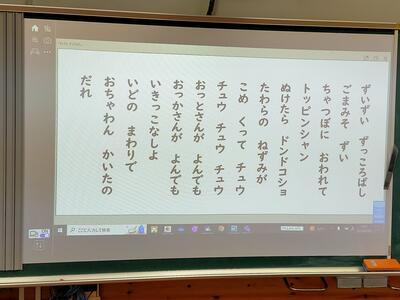 ずいずい ずっころばし
ごまみそ ずい
ちゃつぼに おわれて
トッピンシャン
ぬけたら ドンドコショ
たわらの ねずみが
こめ くって チュウ
チュウ チュウ チュウ
おっとさんが よんでも
おっかさんが よんでも
いきっこなしよ
いどの まわりで
おちゃわん かいたの
だれ
ここに入力して検索